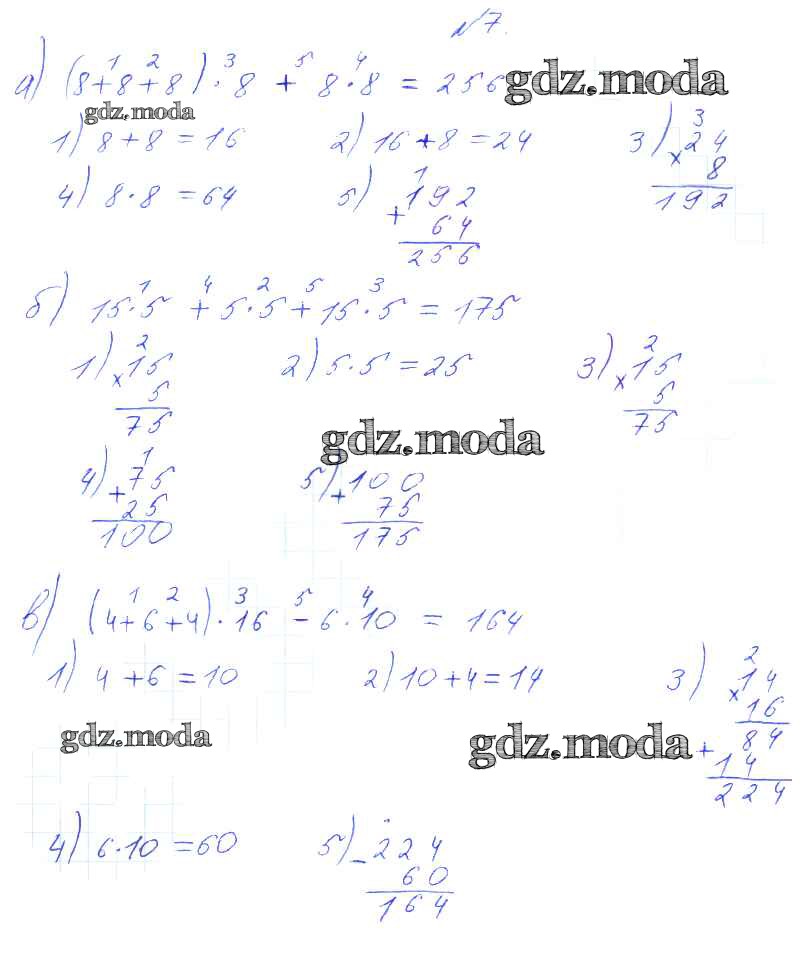 №7.
а) (8+8+8)·8 + 8·8 = 256
1 2 3 5 4
gdz.moda
gdz.moda
1) 8+8=16 2) 16+8=24 3) 3
× 24
8
192
4) 8·8=64 5) 1
+ 192
64
256
б) 15·5 + 5·5 + 15·5 = 175
1 4 2 5 3
1) 2
× 15
5
75
2) 5·5=25 3) 2
× 15
5
75
gdz.moda
4) 1
+ 75
25
100
5) + 100
75
175
в) (4+6+4)·16 - 6·10 = 164
1 2 3 5 4
1) 4+6=10 2) 10+4=14 3) 2
× 14
16
84
+ 14
224
gdz.moda
gdz.moda
4) 6·10=60 5) - 224
60
164